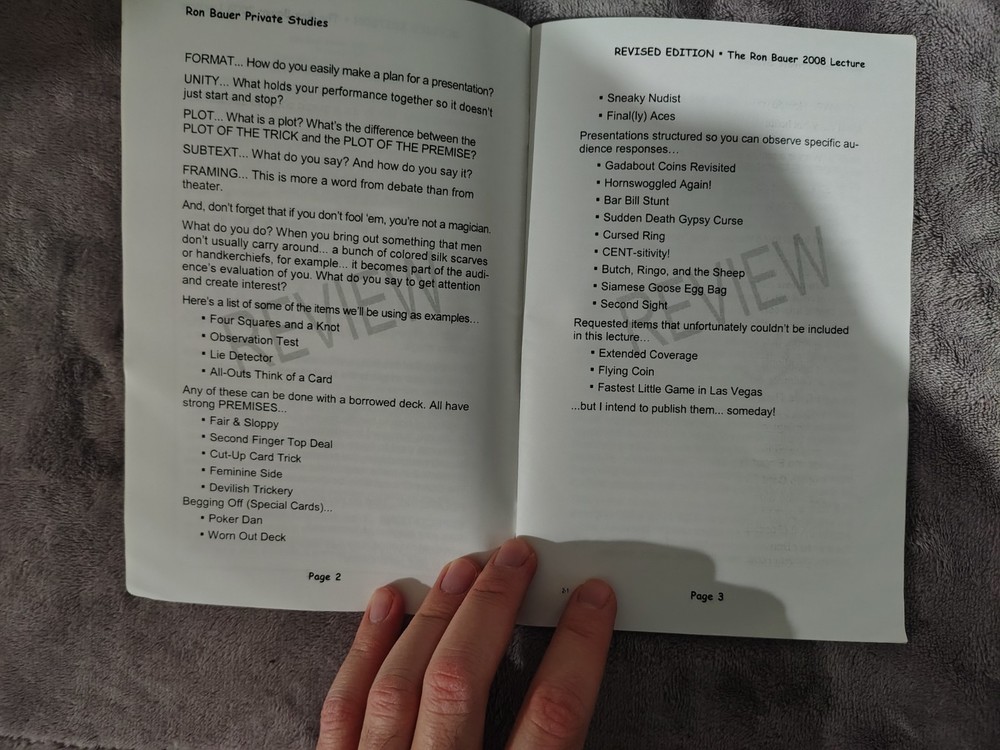 Ron Bauer Private Studies
FORMAT... How do you easily make a plan for a presentation?
UNITY... What holds your performance together so it doesn't
just start and stop?
PLOT... What is a plot? What's the difference between the
PLOT OF THE TRICK and the PLOT OF THE PREMISE?
SUBTEXT... What do you say? And how do you say it?
FRAMING... This is more a word from debate than from
theater.
And, don't forget that if you don't fool 'em, you're not a magician.
What do you do? When you bring out something that men
don't usually carry around... a bunch of colored silk scarves
or handkerchiefs, for example... it becomes part of the audi-
ence's evaluation of you. What do you say to get attention
and create interest?
Here's a list of some of the items we'll be using as examples...
• Four Squares and a Knot
• Observation Test
• Lie Detector
• All-Outs Think of a Card
Any of these can be done with a borrowed deck. All have
strong PREMISES...
• Fair & Sloppy
• Second Finger Top Deal
• Cut-Up Card Trick
• Feminine Side
• Devilish Trickery
Begging Off (Special Cards)...
• Poker Dan
• Worn Out Deck
REVIEW
Page 2
REVISED EDITION • The Ron Bauer 2008 Lecture
• Sneaky Nudist
• Final(ly) Aces
Presentations structured so you can observe specific au-
dience responses...
• Gadabout Coins Revisited
• Hornswoggled Again!
• Bar Bill Stunt
• Sudden Death Gypsy Curse
• Cursed Ring
• CENT-sitivity!
• Butch, Ringo, and the Sheep
• Siamese Goose Egg Bag
• Second Sight
Requested items that unfortunately couldn't be included
in this lecture...
• Extended Coverage
• Flying Coin
• Fastest Little Game in Las Vegas
...but I intend to publish them... someday!
REVIEW
Page 3